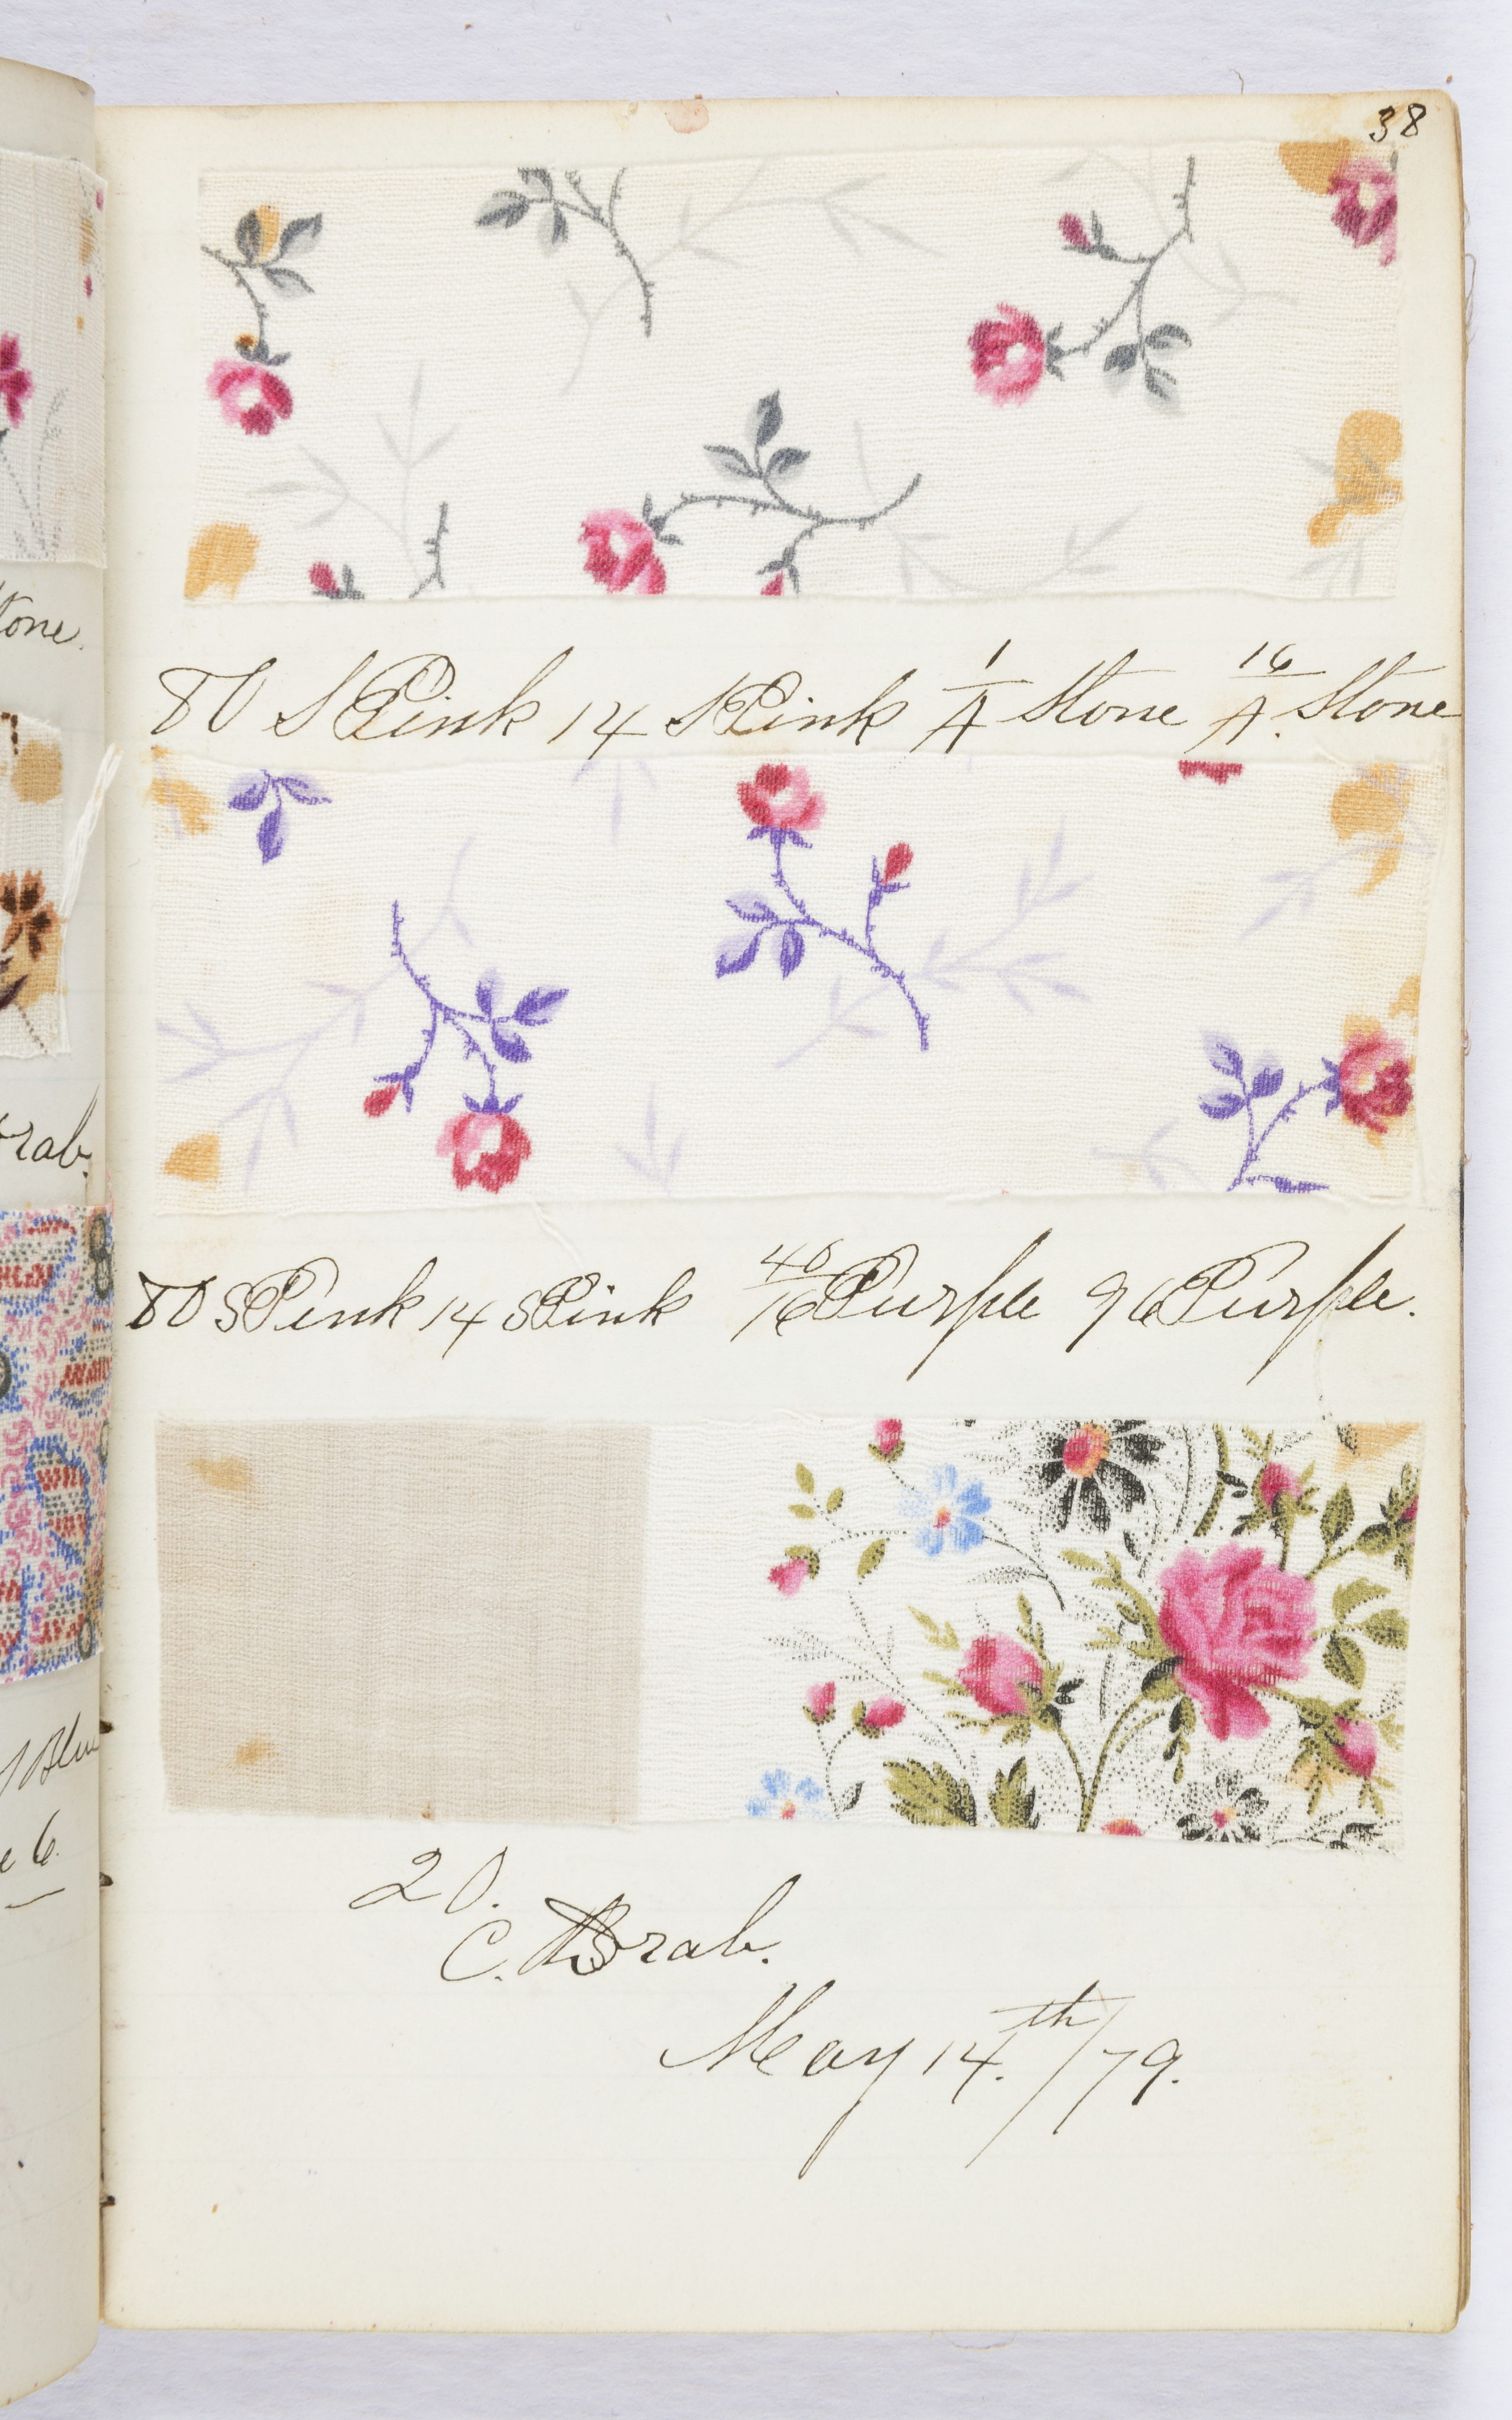 38
tone.
rab.
Blue
e 6.
80 S Pink 14 S Pink 1/4 Stone 16/4. Stone
80 S Pink 14 S Pink 40/16 Purple 96 Purple.
20.
C. Drab.
May 14.th/79.